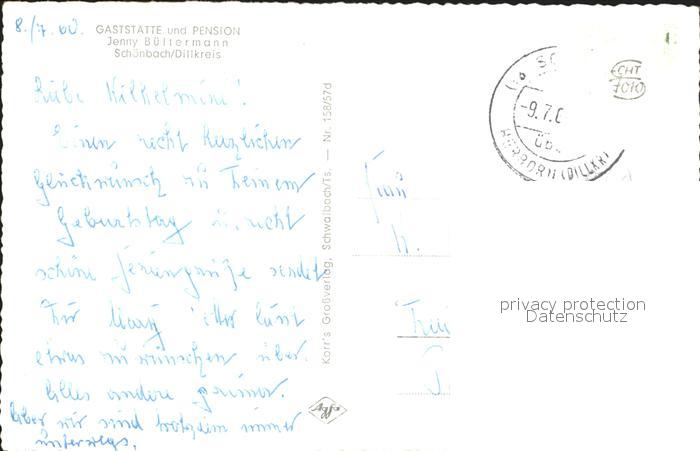 8./7. 60.
GASTSTÄTTE und PENSION
Jenny Bültermann
Schönbach/Dillkreis
Liebe Wilhelmine!
Einen recht herzlichen
Glückwunsch zu Deinem
Geburtstag u. recht
schöne Feriengrüße sendet
Dir Mary
etwas zu wünschen über.
Alles andere prima.
Aber wir sind trotzdem immer
unterwegs.
Korr's Großverlag, Schwalbach/Ts. — Nr. 158/57d
-9.7.6
üb.
HERBORN (DILLKR)
ECHT
FOTO
Frau
privacy protection
Datenschutz